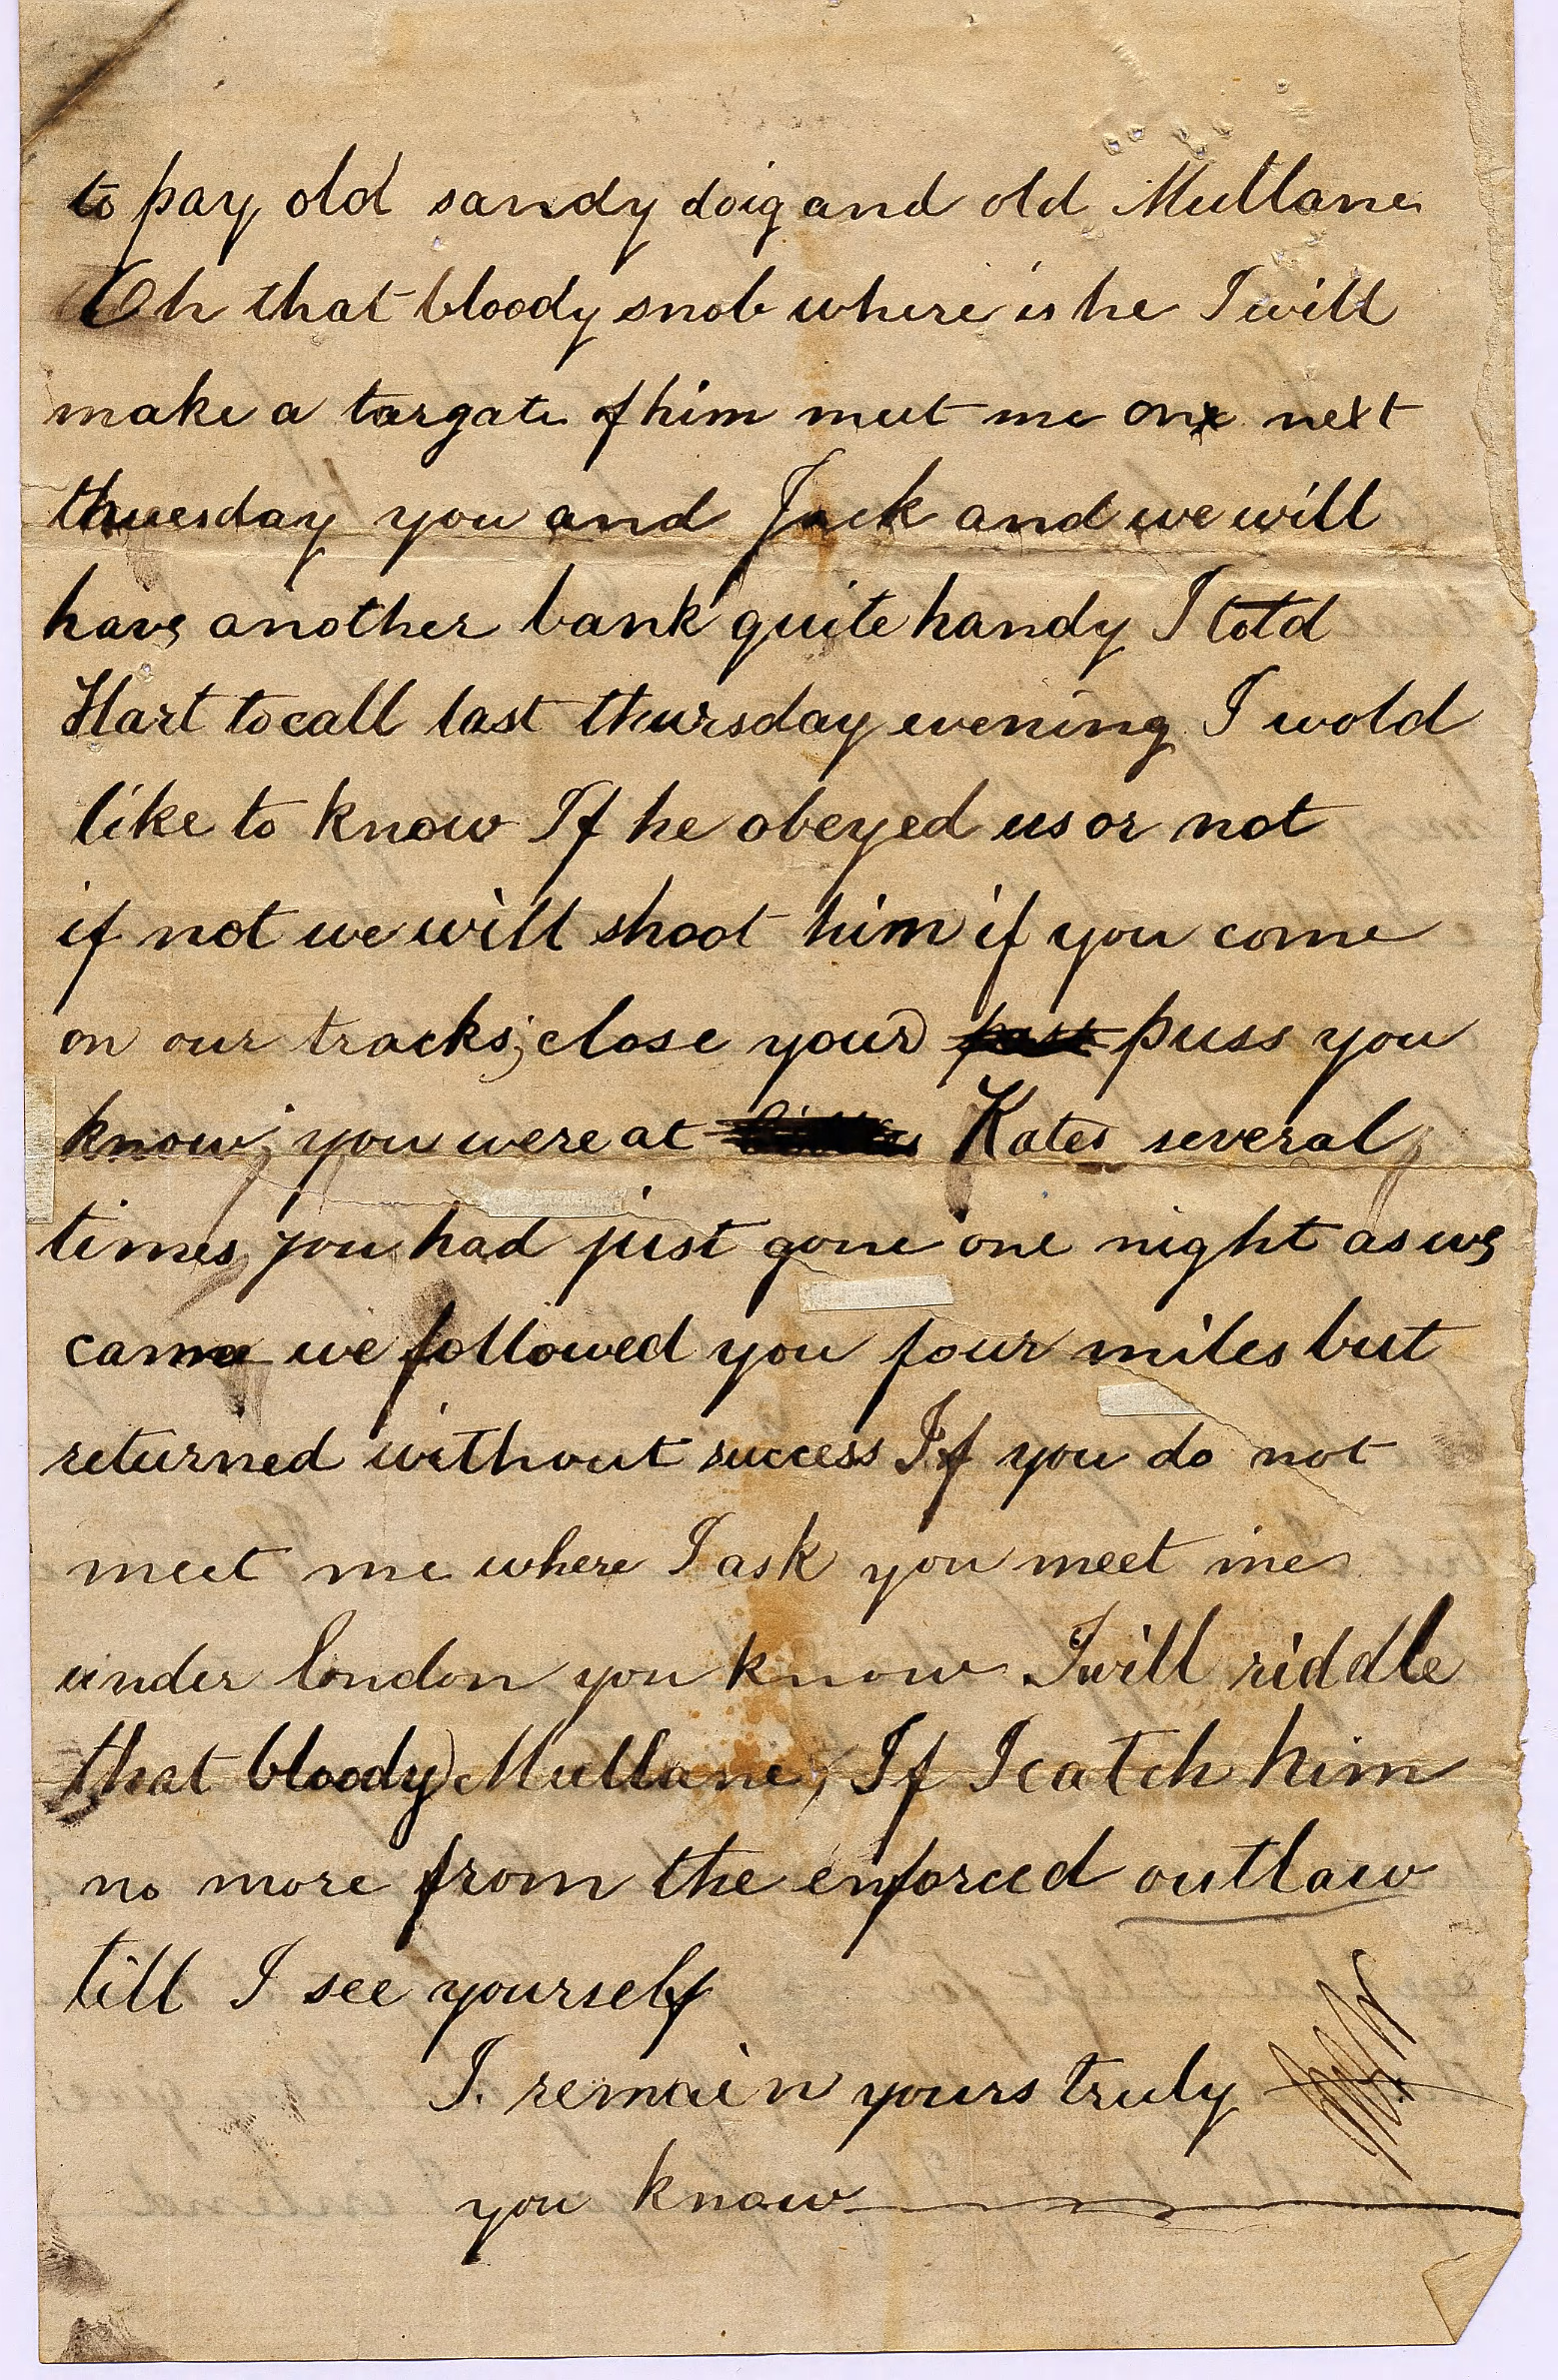 to pay old sandy doig and old Mullane
Oh that bloody snob where is he I will
make a targate of him meet me on next
thuesday you and Jack and we will
have another bank quite handy I told
Hart to call last thursday evening I wold
like to know If he obeyed us or not
if not we will shoot him if you come
on our tracks; close your puss you
know; you were at Kates several
times you had just gone one night as we
came we followed you four miles but
returned without success If you do not
meet me where I ask you meet me
under london you know I will riddle
that bloody Mullane, If I catch him
no more from the enforced outlaw
till I see yourself
I. remain yours truly
you know